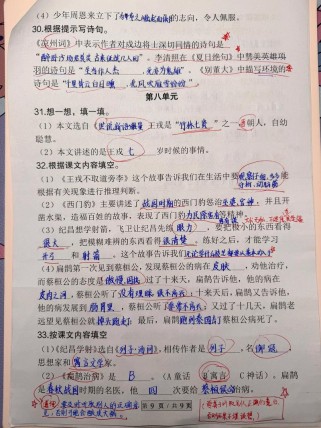 (4)少年周恩来立下了为中华之崛起而读书的志向，令人佩服。
30.根据提示写诗句。
《凉州词》中表示作者对戍边将士深切同情的诗句是
“醉卧沙场君莫笑 古来征战几人回”。李清照在《夏日绝句》中赞美英雄项
羽的诗句是“生当作人杰 ，死亦为鬼雄”。《别董大》中描写环境的
诗句是“千里黄云白日曛，北风吹雁雪纷纷”。
第八单元
31.想一想，填一填。
(1)本文选自《世说新语 》王戎是“竹林七贤”之一 朝人，自幼
聪慧。
(2)本文讲述的是王戎 七 岁时候的事情。
32.根据课文内容填空。
(1)《王戎不取道旁李》这个故事告诉我们在生活中要 观察仔细，多
能根据有关现象进行推理判断。
(2)《西门豹》主要讲述了战国时期的西门豹惩治 官绅，并且开
凿水渠，造福百姓的故事，表现了西门豹为民除害等精神。
(3)纪昌想学射箭，飞卫让纪昌先练 眼力 ，要把极小的东西看得
很大 ，把模糊难辨的东西看得很清楚 。练好之后，才能学习
开弓 和 射箭 。这个故事告诉我们
(4)扁鹊第一次见到蔡桓公，发现蔡桓公的病在 皮肤 ，劝他治疗，
而蔡桓公的态度是 ；过了十来天，扁鹊告诉他，他的病在
皮肉之间，蔡桓公听了没有理睬 ；十来天后，扁鹊又告诉他，
他的病发展到 肠胃里 ，蔡桓公听了非常不高兴；又过了十几天，扁鹊老
远望见蔡桓公就掉头跑走；最后，扁鹊 蔡桓公病死了。
33.按课文内容填空
(1)《纪昌学射》选自《列子·汤问》，相传作者是 列子 ，名 御寇 ，
思想家和 寓言文学家
(2)《扁鹊治病》是 B 。（A童话 B寓言 C神话），扁鹊
是春秋战国时期的名医，他 四 次要给 蔡桓侯 治病，
第 9 页 / 共 9 页